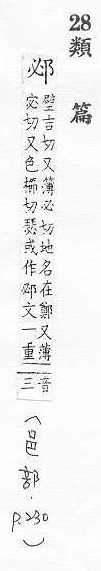 28類篇
邲
壁吉切又薄必切地名在鄭又薄
宓切又色櫛切瑟或作邲文一重
音三
(邑部.P.230)